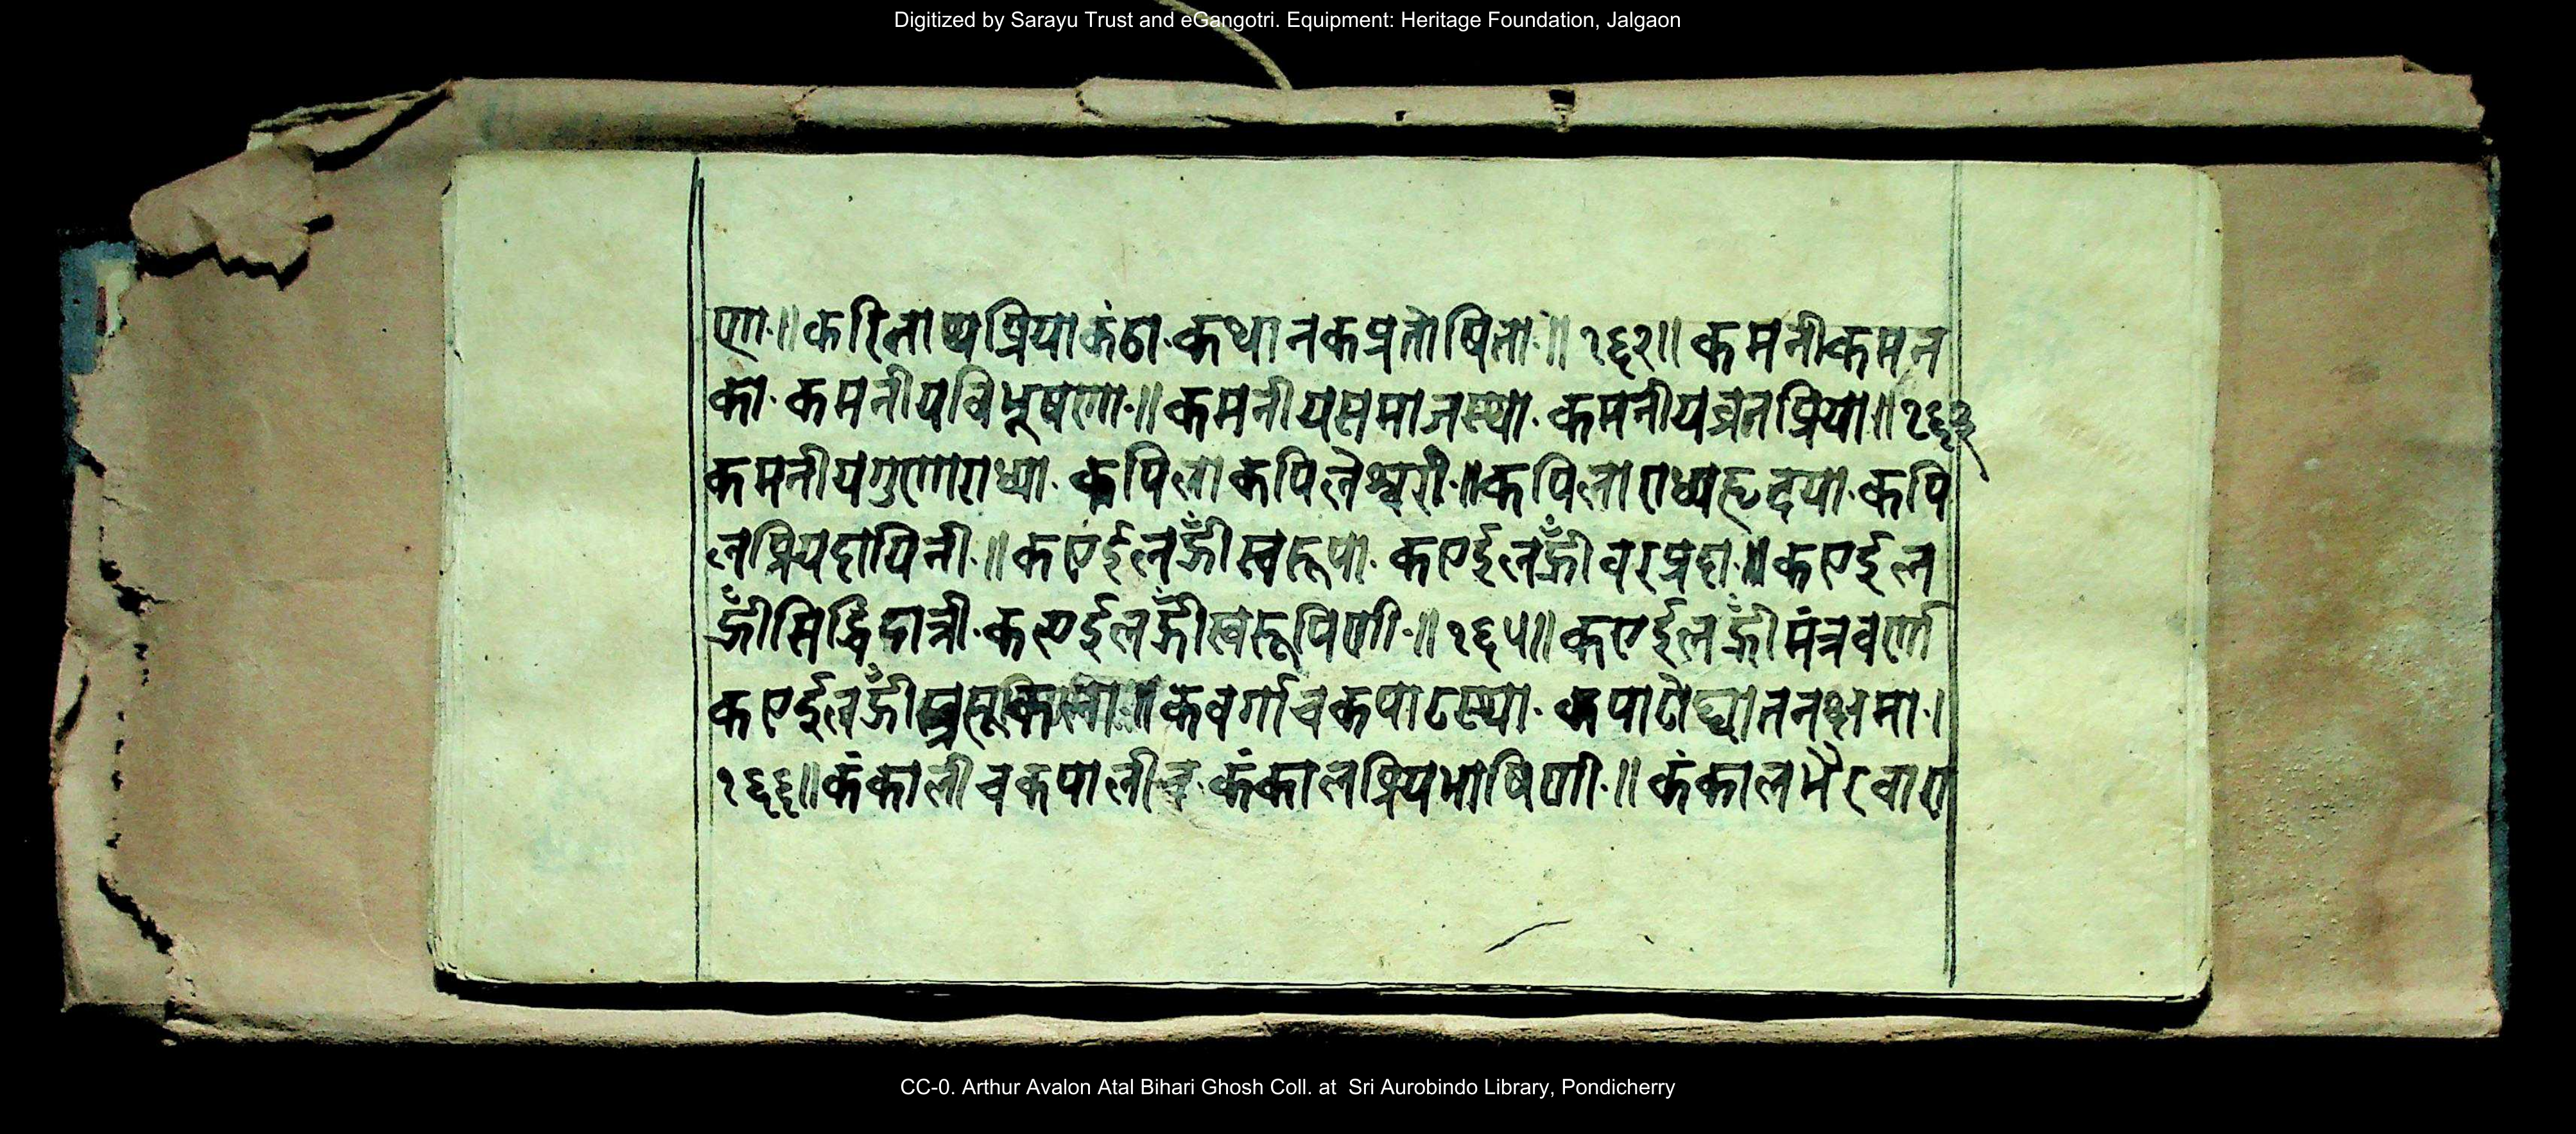 Digitized by Sarayu Trust and eGangotri. Equipment: Heritage Foundation, Jalgaon
णा॰॥करिनाथप्रियाकंठा॰कथानकप्रतोषिता॰॥१६२॥कमनीकमन
का॰कमनीयविभूषणा॰॥कमनीयसमाजस्था॰कमनीयव्रतप्रिया॥१६३
कमनीयगुणाराध्या॰कपिलाकपिलेश्वरी॰॥कपिलाराध्यहृदया॰कपि
लप्रियदायिनी॰॥कएईलह्रीँस्वरूपा॰कएईलह्रीँवरप्रदा॰॥कएईल
ह्रीँसिद्धिदात्री॰कएईलह्रीँस्वरूपिणी॰॥१६५॥कएईलह्रीँमंत्रवर्णा
कएईलह्रीँ कवर्गाचकपाटस्था॰कपाटोद्घातनक्षमा॰।
१६६॥कंकालीचकपालीच॰कंकालप्रियभाषिणी॰॥कंकालभैरवारा
CC-0. Arthur Avalon Atal Bihari Ghosh Coll. at Sri Aurobindo Library, Pondicherry